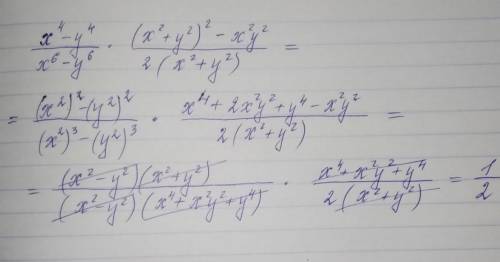 x⁴-y⁴/x⁶-y⁶ · (x²+y²)²-x²y²/2(x²+y²) =
= (x²)²-(y²)²/(x²)³-(y²)³ · x⁴+2x²y²+y⁴-x²y²/2(x²+y²) =
= (x²-y²)(x²+y²)/(x²-y²)(x⁴+x²y²+y⁴) · x⁴+x²y²+y⁴/2(x²+y²) = 1/2